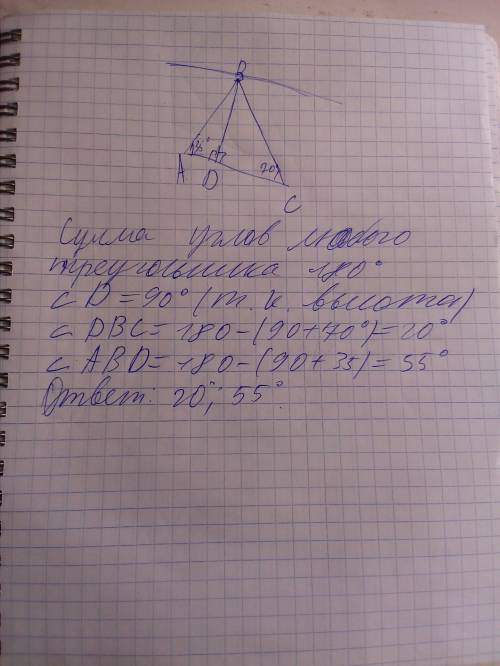 B
35°
70
A
D
C
Сумма углов любого
треугольника 180°
∠ D = 90° (т. к. высота)
∠ DBC = 180 - (90 + 70°) = 20°
∠ ABD = 180 - (90 + 35) = 55°
Ответ: 20°; 55°.